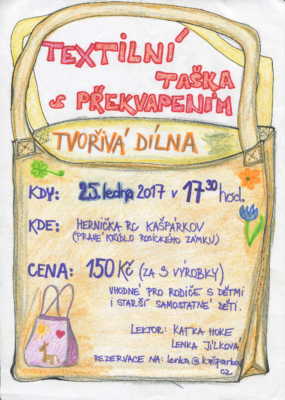 TEXTILNÍ
TAŠKA
S PŘEKVAPENÍM
TVOŘIVÁ DÍLNA
KDY: 25. ledna 2017 v 17³⁰ hod.
KDE: HERNIČKA RC KAŠPÁRKOV
(PRAVÉ KŘÍDLO ROSICKÉHO ZÁMKU)
CENA: 150 Kč (ZA 3 VÝROBKY)
VHODNÉ PRO RODIČE S DĚTMI
I STARŠÍ SAMOSTATNÉ DĚTI.
LEKTOR: KATKA HOKE
LENKA JÍLKOVÁ
REZERVACE NA: lenka@kašparkov
CZ